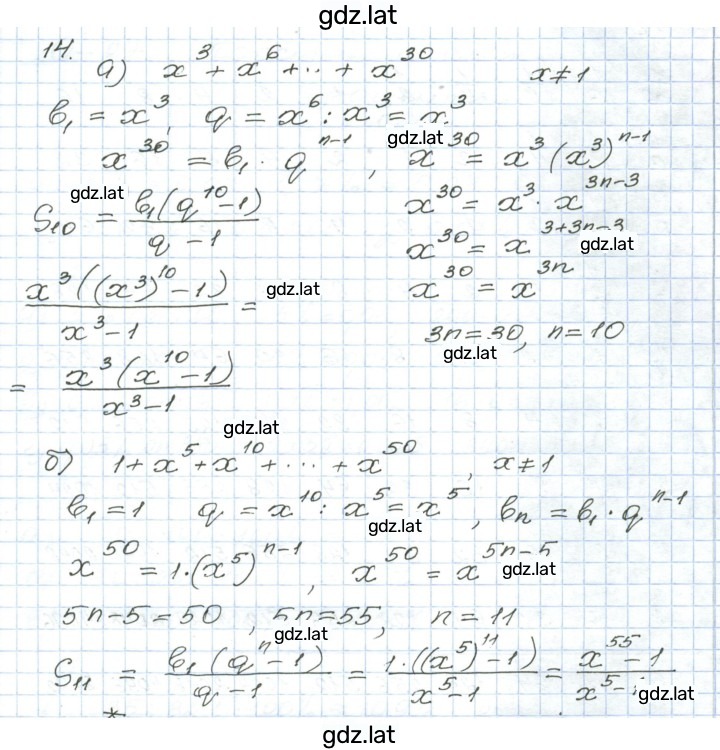 gdz.lat
14.
а) x³ + x⁶ + ... + x³⁰ x ≠ 1
b₁ = x³, q = x⁶ : x³ = x³
gdz.lat
x³⁰ = b₁ · qⁿ⁻¹, x³⁰ = x³(x³)ⁿ⁻¹
gdz.lat
x³⁰ = x³ · x³ⁿ⁻³
S₁₀ = b₁(q¹⁰ - 1) / (q - 1)
x³⁰ = x³⁺³ⁿ⁻³
gdz.lat
x³((x³)¹⁰ - 1) / (x³ - 1) =
gdz.lat
x³⁰ = x³ⁿ
3n = 30, n = 10
gdz.lat
= x³(x¹⁰ - 1) / (x³ - 1)
gdz.lat
б) 1 + x⁵ + x¹⁰ + ... + x⁵⁰, x ≠ 1
b₁ = 1 q = x¹⁰ : x⁵ = x⁵, bₙ = b₁ · qⁿ⁻¹
gdz.lat
x⁵⁰ = 1·(x⁵)ⁿ⁻¹, x⁵⁰ = x⁵ⁿ⁻⁵
gdz.lat
5n - 5 = 50, 5n = 55, n = 11
gdz.lat
S₁₁ = b₁(qⁿ - 1) / (q - 1) = 1·((x⁵)¹¹ - 1) / (x⁵ - 1) = (x⁵⁵ - 1) / (x⁵ -
gdz.lat
*
gdz.lat